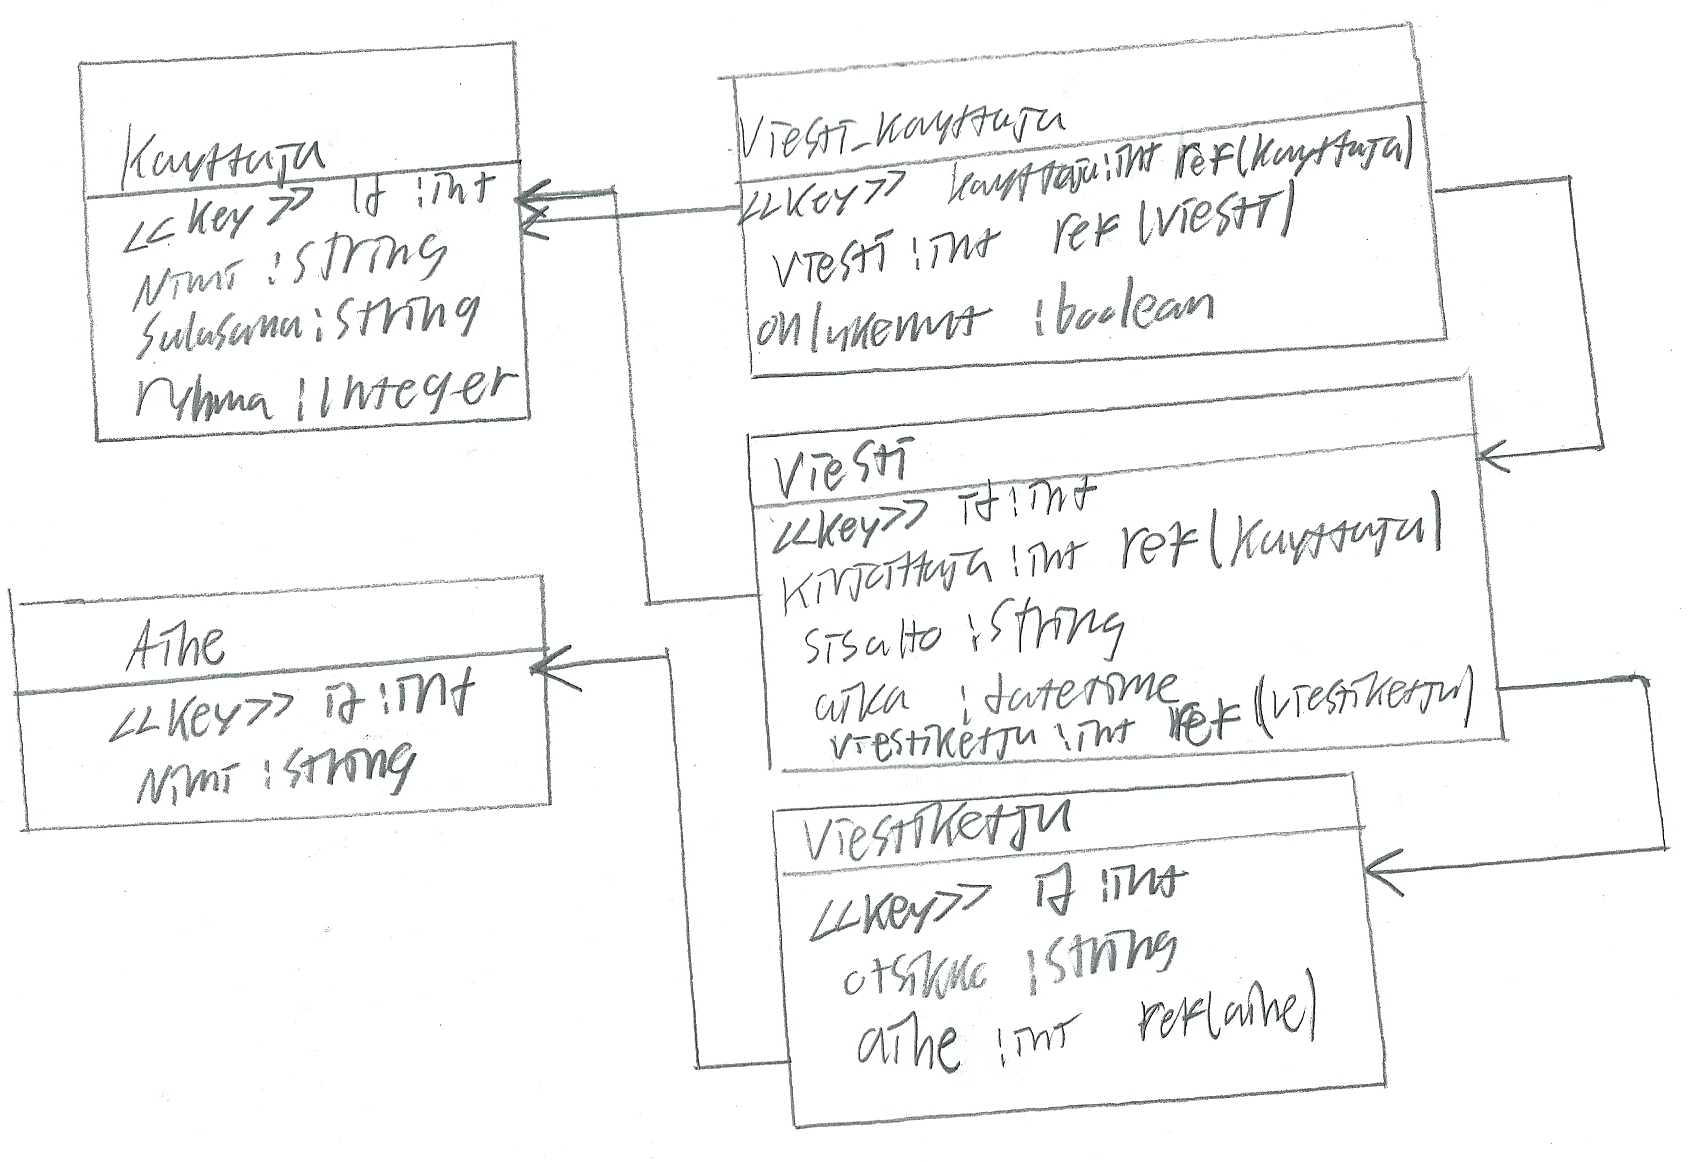 Kayttaja
<<Key>> id : int
Nimi : String
Salasana : String
ryhma : Integer
Viesti_kayttaja
<<Key>> kayttaja : int ref(kayttaja)
viesti : int ref(viesti)
on lukenut : boolean
Viesti
<<key>> id : int
Kirjoittaja : int ref(kayttaja)
sisalto : String
aika : datetime
viestiketju : int ref(viestiketju)
Aihe
<<Key>> id : int
Nimi : String
Viestiketju
<<Key>> id : int
otsikko : String
aihe : int ref(aihe)